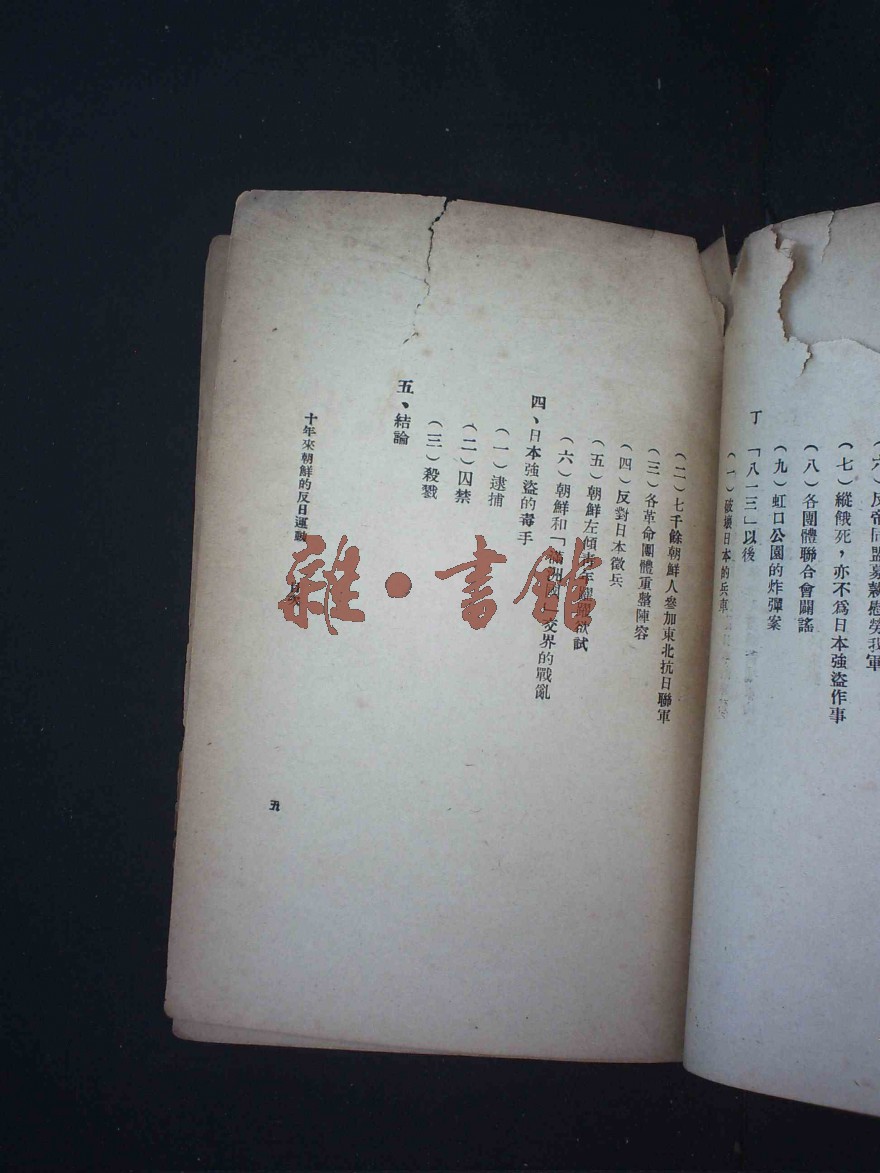 (六)反帝同盟募款慰勞我軍
(七)縱餓死，亦不爲日本強盜作事
(八)各團體聯合會闢謠
(九)虹口公園的炸彈案
丁 「八一三」以後
(一)破壞日本的兵車
(二)七千餘朝鮮人參加東北抗日聯軍
(三)各革命團體重整陣容
(四)反對日本徵兵
(五)朝鮮左傾青年躍躍欲試
(六)朝鮮和「滿洲國」交界的戰亂
四、日本強盜的毒手
(一)逮捕
(二)囚禁
(三)殺戮
五、結論
十年來朝鮮的反日運動 目次
五
雜·書館